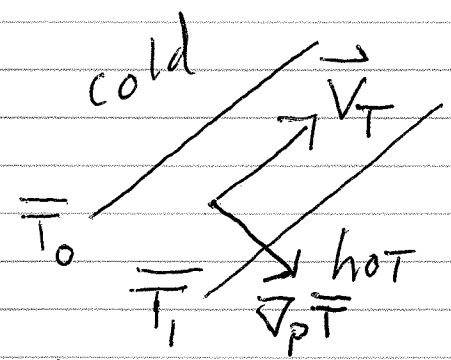 cold
V⃗_T
T̅_0
T̅_1
hot
∇_p T̅